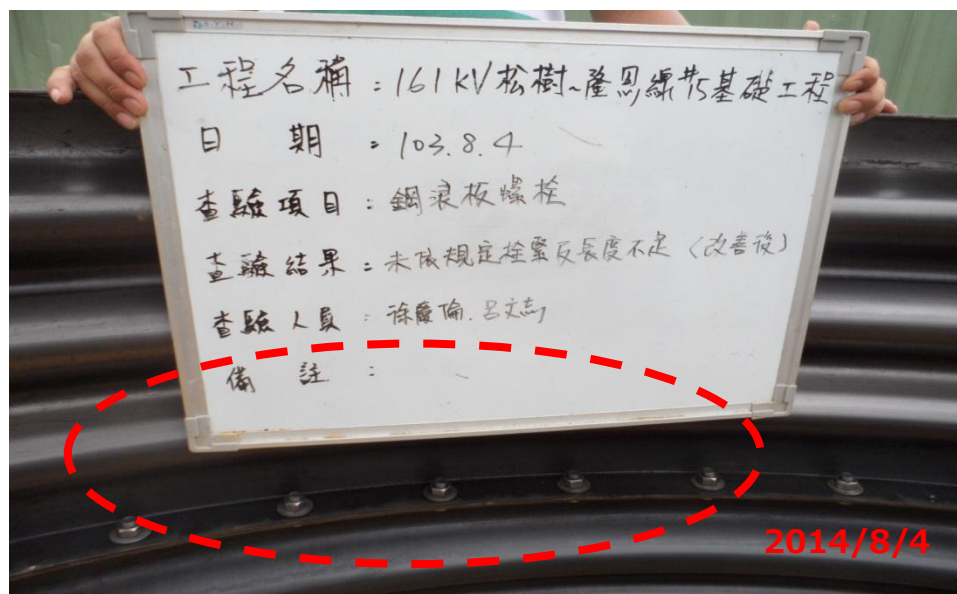 工程名稱：161KV松樹~隆恩線#15基礎工程
日期：103.8.4
查驗項目：鋼浪板螺栓
查驗結果：未依規定栓緊及長度不足（改善後）
查驗人員：徐慶倫.呂文志
備註：
2014/8/4